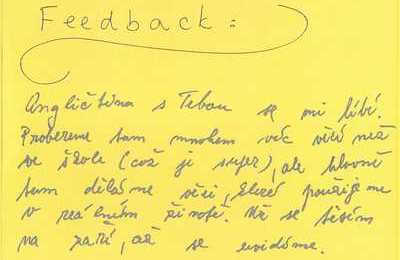 Feedback:
Angličtina s Tebou se mi líbí.
Probereme tam mnohem víc věcí než
ve škole (což je super), ale hlavně
tam děláme věci, které použijeme
v reálném životě. Už se těším
na září, až se uvidíme.